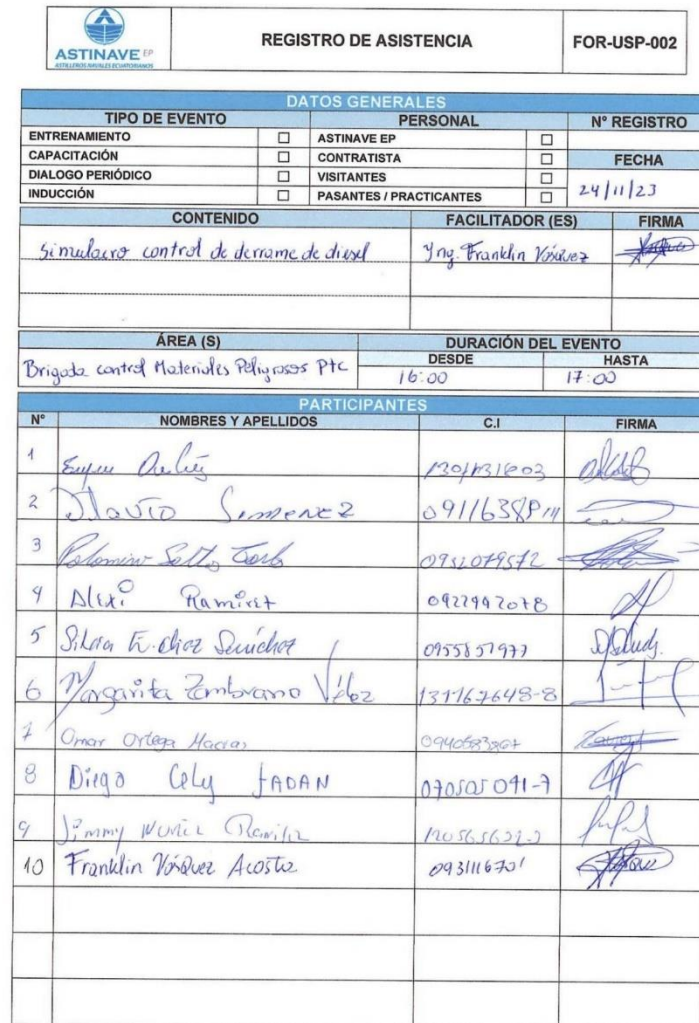 ASTINAVE EP
ASTILLEROS NAVALES ECUATORIANOS
REGISTRO DE ASISTENCIA
FOR-USP-002
DATOS GENERALES
TIPO DE EVENTO PERSONAL N° REGISTRO
ENTRENAMIENTO ASTINAVE EP
CAPACITACIÓN CONTRATISTA FECHA
DIALOGO PERIÓDICO VISITANTES 24/11/23
INDUCCIÓN PASANTES / PRACTICANTES
CONTENIDO FACILITADOR (ES) FIRMA
Simulacro control de derrame de diesel Yng. Franklin Vásquez
ÁREA (S) DURACIÓN DEL EVENTO
DESDE HASTA
Brigada control Materiales Peligrosos Ptc 16:00 17:00
PARTICIPANTES
N° NOMBRES Y APELLIDOS C.I FIRMA
1
2
3 Palomino
4 Alexi Ramirez
5 Sánchez 0955857977
6 Margarita Zambrano Vélez 131167648-8
7 Omar Ortega Macias
8 Diego Cely 070505091-7
9 Jimmy
10 Franklin Vásquez Acosta 0931116701